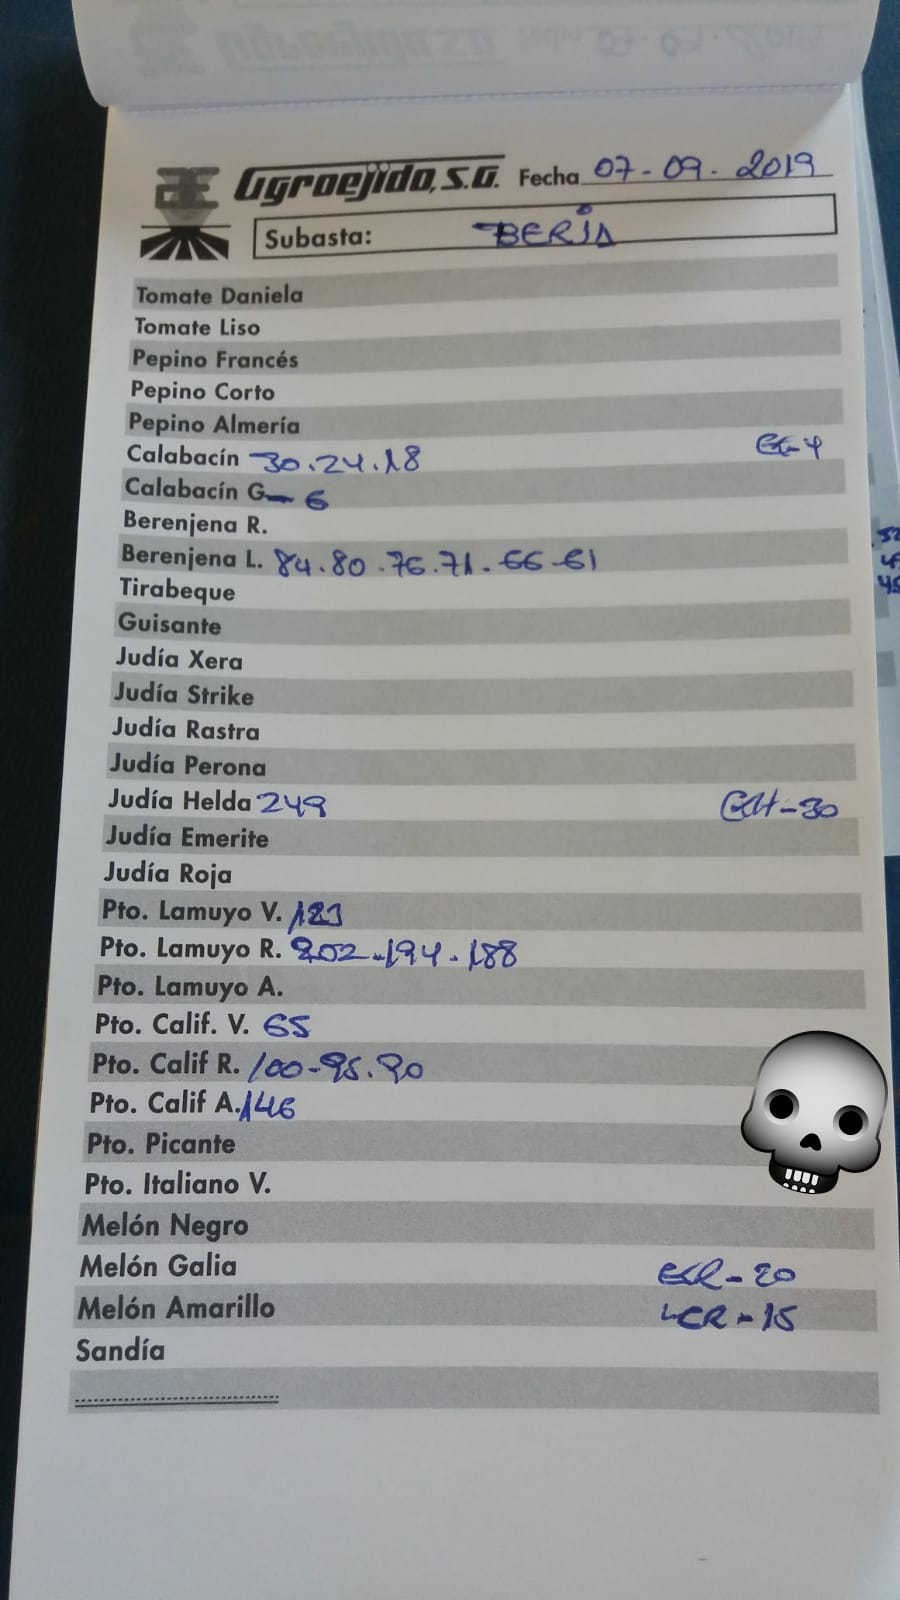 Agroejido, S.A. Fecha 07-09-2019
Subasta: BERJA
Tomate Daniela
Tomate Liso
Pepino Francés
Pepino Corto
Pepino Almería
Calabacín 30.24.18
Calabacín G- 6
Berenjena R.
Berenjena L. 84.80.76.71.66-61
Tirabeque
Guisante
Judía Xera
Judía Strike
Judía Rastra
Judía Perona
Judía Helda 249
Judía Emerite
Judía Roja
Pto. Lamuyo V. 123
Pto. Lamuyo R. 202-194.188
Pto. Lamuyo A.
Pto. Calif. V. 65
Pto. Calif R. 100-95.90
Pto. Calif A. 146
Pto. Picante
Pto. Italiano V.
Melón Negro
Melón Galia
Melón Amarillo LCR-15
Sandía